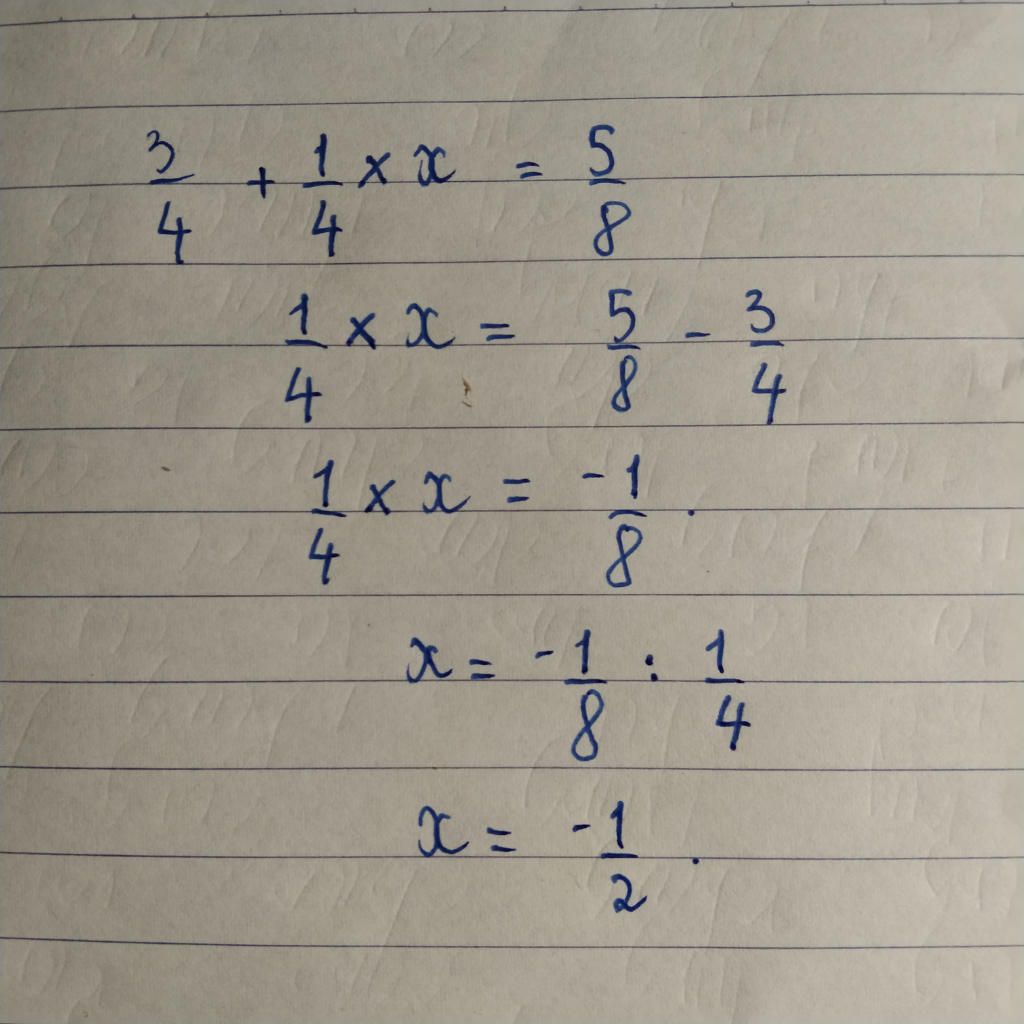 3/4 + 1/4 × x = 5/8
1/4 × x = 5/8 - 3/4
1/4 × x = -1/8 .
x = -1/8 : 1/4
x = -1/2 .